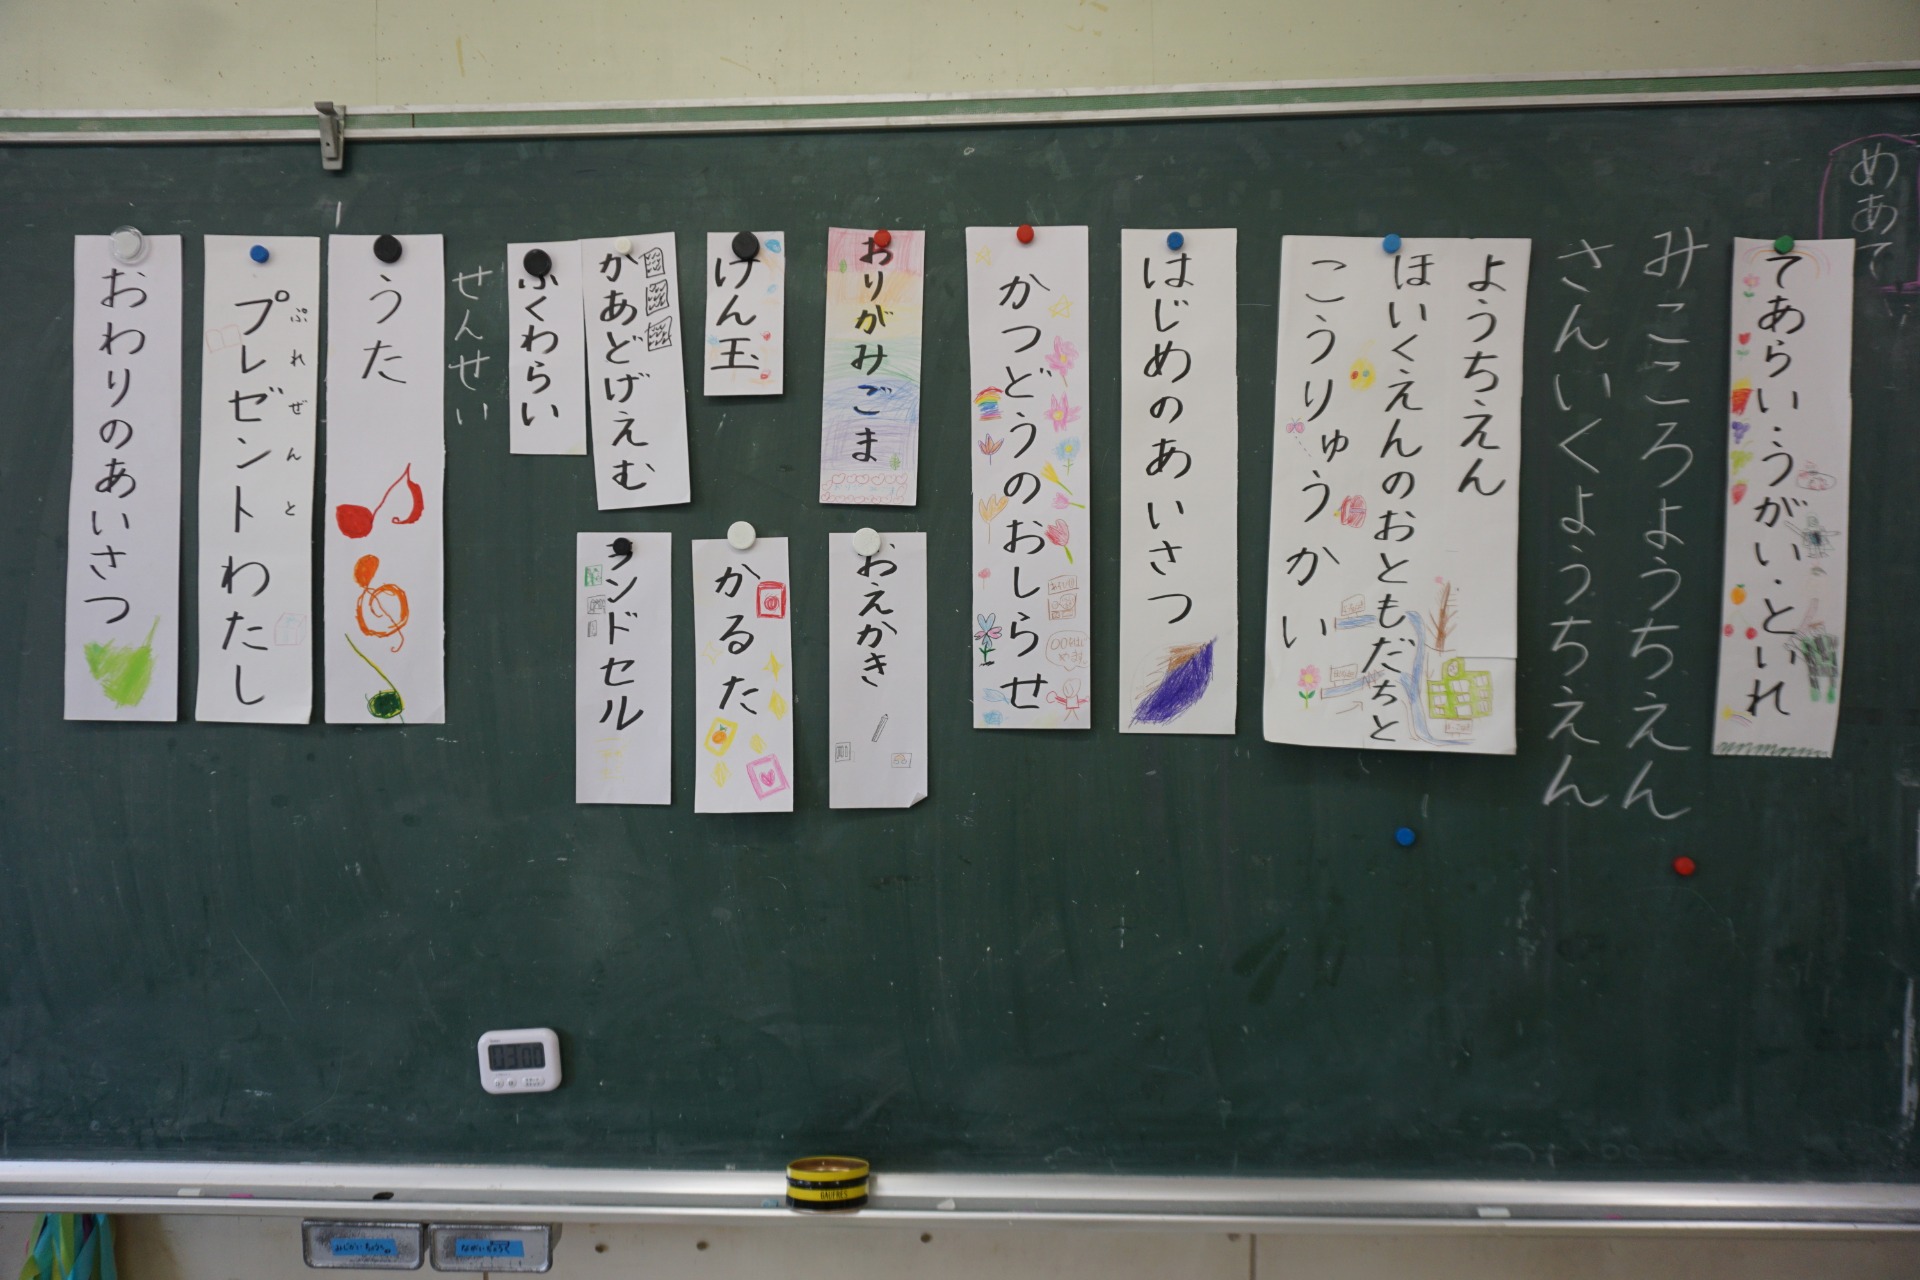 めあて
てあらい・うがい・といれ
みこころようちえん
さんいくようちえん
ようちえん
ほいくえんのおともだちと
こうりゅうかい
はじめのあいさつ
かつどうのおしらせ
おりがみごま
けん玉
かあどげえむ
ふくわらい
おえかき
かるた
ランドセル
せんせい
うた
ぷれぜんと
プレゼントわたし
おわりのあいさつ
03:00
GAUFRES